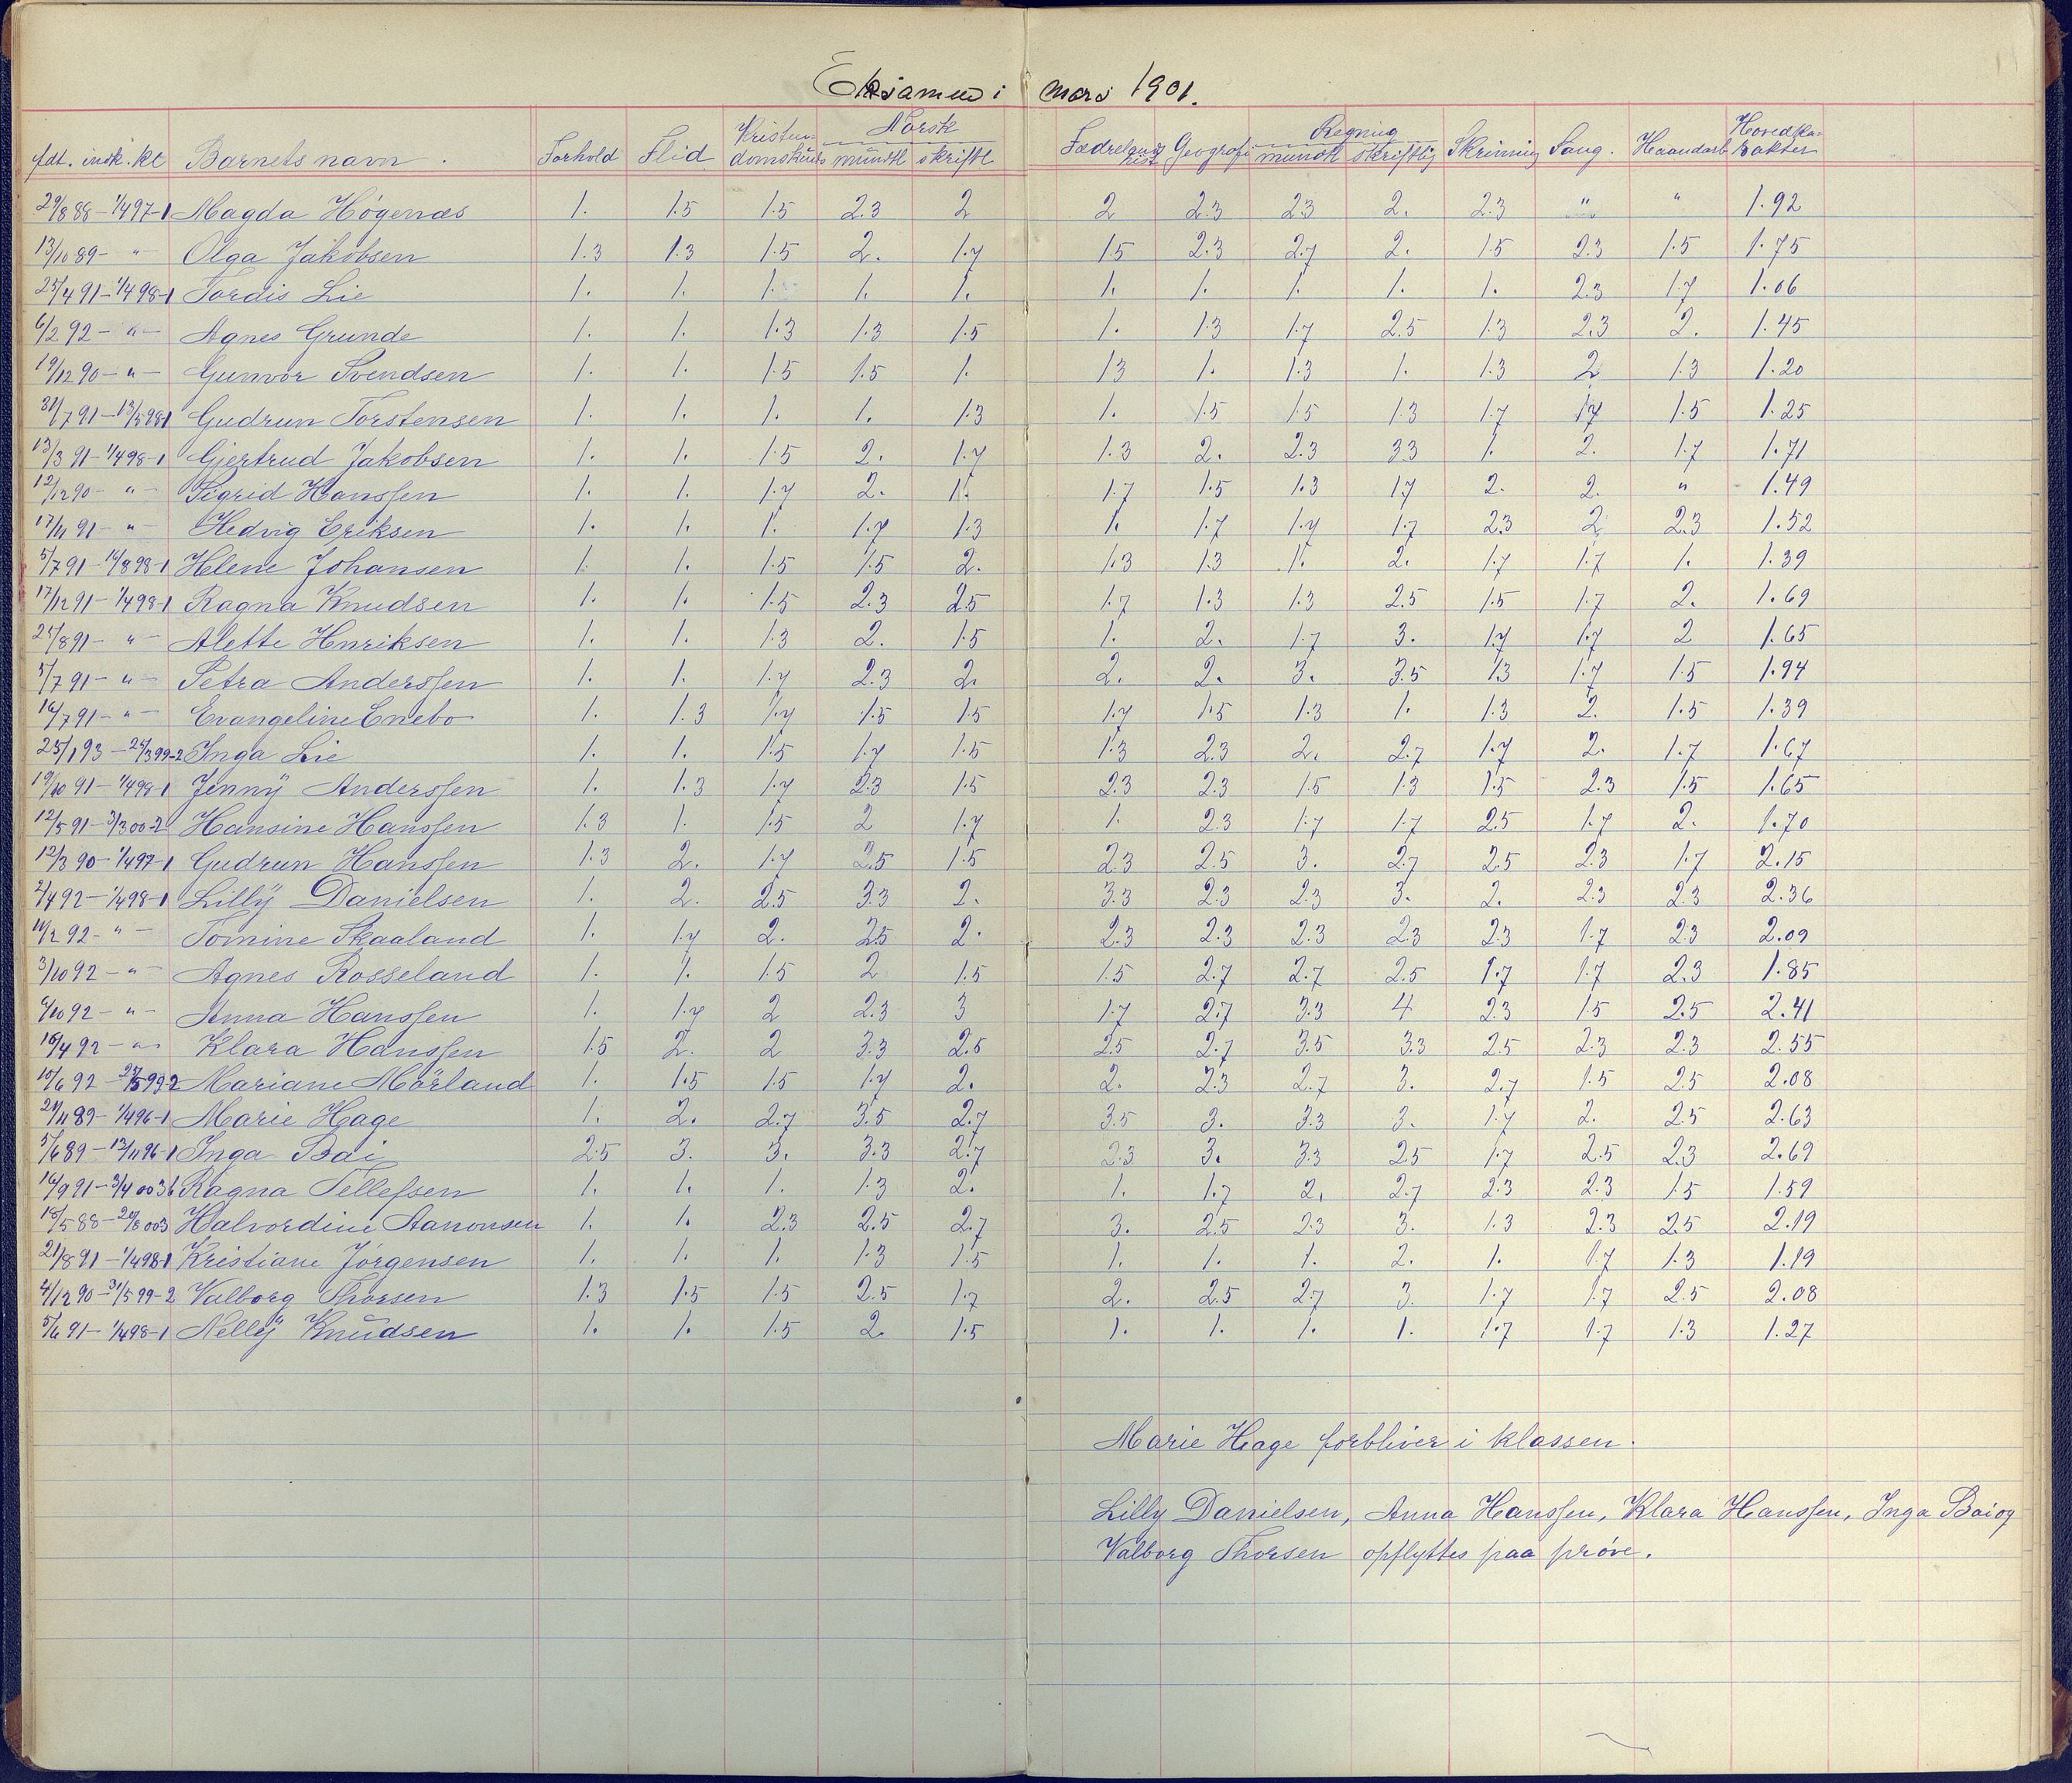 Eksamen i mars 1901.
fdt. indsk. kl Barnets navn. Forhold Flid Kristendomskunds Norsk mundtl skriftl Fædrelandshist Geografi Regning mundtl skriftlig Skrivning Sang. Haandarb Hovedkarakter
29/8 88 - 1/4 97-1 Magda Högenæs 1. 1.5 1.5 2.3 2 2 2.3 2.3 2. 2.3 " " 1.92
13/10 89 - " Olga Jakobsen 1.3 1.3 1.5 2. 1.7 1.5 2.3 2.7 2. 1.5 2.3 1.5 1.75
25/4 91 - 1/4 98-1 Tordis Lie 1. 1. 1. 1. 1. 1. 1. 1. 1. 1. 2.3 1.7 1.06
6/2 92 - " - Agnes Grunde 1. 1. 1.3 1.3 1.5 1. 1.3 1.7 2.5 1.3 2.3 2. 1.45
19/12 90 - " - Gunvor Svendsen 1. 1. 1.5 1.5 1. 1.3 1. 1.3 1. 1.3 2 1.3 1.20
31/7 91 - 13/5 98-1 Gudrun Torstensen 1. 1. 1. 1. 1.3 1. 1.5 1.5 1.3 1.7 1.7 1.5 1.25
13/3 91 - 1/4 98-1 Gjertrud Jakobsen 1. 1. 1.5 2. 1.7 1.3 2. 2.3 3.3 1. 2. 1.7 1.71
12/12 90 - " - Sigrid Hanssen 1. 1. 1.7 2. 1. 1.7 1.5 1.3 1.7 2. 2. " 1.49
17/11 91 - " - Hedvig Eriksen 1. 1. 1. 1.7 1.3 1. 1.7 1.7 1.7 2.3 2 2.3 1.52
5/7 91 - 16/8 98-1 Helene Johansen 1. 1. 1.5 1.5 2. 1.3 1.3 1. 2. 1.7 1.7 1. 1.39
17/12 91 - 1/4 98-1 Ragna Knudsen 1. 1. 1.5 2.3 2.5 1.7 1.3 1.3 2.5 1.5 1.7 2. 1.69
25/8 91 - " - Alette Hnriksen 1. 1. 1.3 2. 1.5 1. 2. 1.7 3. 1.7 1.7 2 1.65
5/7 91 - " - Petra Anderssen 1. 1. 1.7 2.3 2. 2. 2. 3. 3.5 1.3 1.7 1.5 1.94
16/7 91 - " - Evangeline Enebo 1. 1.3 1.7 1.5 1.5 1.7 1.5 1.3 1. 1.3 2. 1.5 1.39
25/1 93 - 24/3 99-2 Inga Lie 1. 1. 1.5 1.7 1.5 1.3 2.3 2. 2.7 1.7 2. 1.7 1.67
19/10 91 - 1/4 98-1 Jenny Anderssen 1. 1.3 1.7 2.3 1.5 2.3 2.3 1.5 1.3 1.5 2.3 1.5 1.65
12/5 91 - 3/3 00-2 Hansine Hanssen 1.3 1. 1.5 2 1.7 1. 2.3 1.7 1.7 2.5 1.7 2. 1.70
12/3 90 - 1/4 97-1 Gudrun Hanssen 1.3 2. 1.7 2.5 1.5 2.3 2.5 3. 2.7 2.5 2.3 1.7 2.15
2/4 92 - 1/4 98-1 Lilly Danielsen 1. 2. 2.5 3.3 2. 3.3 2.3 2.3 3. 2. 2.3 2.3 2.36
11/2 92 - " - Tomine Skaaland 1. 1.7 2. 2.5 2. 2.3 2.3 2.3 2.3 2.3 1.7 2.3 2.09
3/10 92 - " - Agnes Rosseland 1. 1. 1.5 2 1.5 1.5 2.7 2.7 2.5 1.7 1.7 2.3 1.85
6/10 92 - " - Anna Hanssen 1. 1.7 2 2.3 3 1.7 2.7 3.3 4 2.3 1.5 2.5 2.41
16/4 92 - " Klara Hanssen 1.5 2. 2 3.3 2.5 2.5 2.7 3.5 3.3 2.5 2.3 2.3 2.55
10/6 92 - 27/5 99-2 Mariane Mörland 1. 1.5 1.5 1.7 2. 2. 2.3 2.7 3. 2.7 1.5 2.5 2.08
21/11 89 - 1/4 96-1 Marie Hage 1. 2. 2.7 3.5 2.7 3.5 3. 3.3 3. 1.7 2. 2.5 2.63
5/6 89 - 13/11 96-1 Inga Bai 2.5 3. 3. 3.3 2.7 2.3 3. 3.3 2.5 1.7 2.5 2.3 2.69
16/9 91 - 3/4 00 3b Ragna Tellefsen 1. 1. 1. 1.3 2. 1. 1.7 2. 2.7 2.3 2.3 1.5 1.59
18/5 88 - 20/8 00 3 Halvordine Aanonsen 1. 1. 2.3 2.5 2.7 3. 2.5 2.3 3. 1.3 2.3 2.5 2.19
21/8 91 - 1/4 98-1 Kristiane Jörgensen 1. 1. 1. 1.3 1.5 1. 1. 1. 2. 1. 1.7 1.3 1.19
4/12 90 - 31/5 99-2 Valborg Thorsen 1.3 1.5 1.5 2.5 1.7 2. 2.5 2.7 3. 1.7 1.7 2.5 2.08
5/6 91 - 1/4 98-1 Nelly Knudsen 1. 1. 1.5 2. 1.5 1. 1. 1. 1. 1.7 1.7 1.3 1.27
Marie Hage forbliver i klassen.
Lilly Danielsen, Anna Hanssen, Klara Hanssen, Inga Bai og
Valborg Thorsen opflyttes paa prøve.